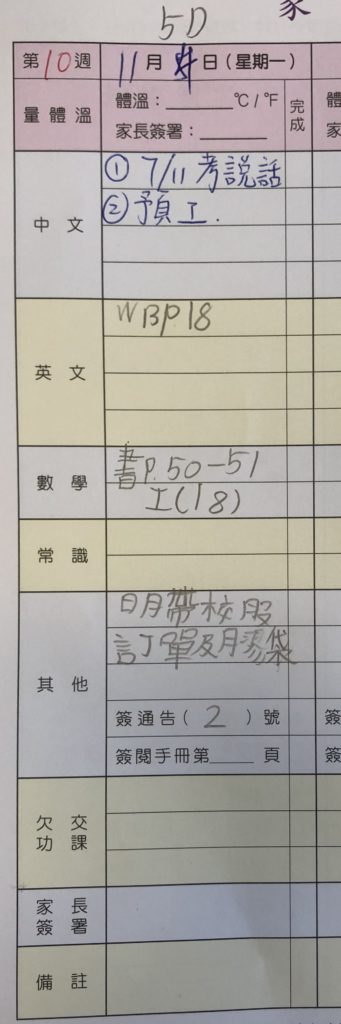 5D
第10週 11月 日(星期一)
量體溫 體溫:______ °C / °F 完成
家長簽署:______
中文 ① 7/11考說話
② 預工.
英文 WBP18
數學 書P.50-51
工(18)
常識
其他 日月帶校服
訂單及月湯袋
簽通告( 2 )號
簽閱手冊第____頁
欠交功課
家長簽署
備註